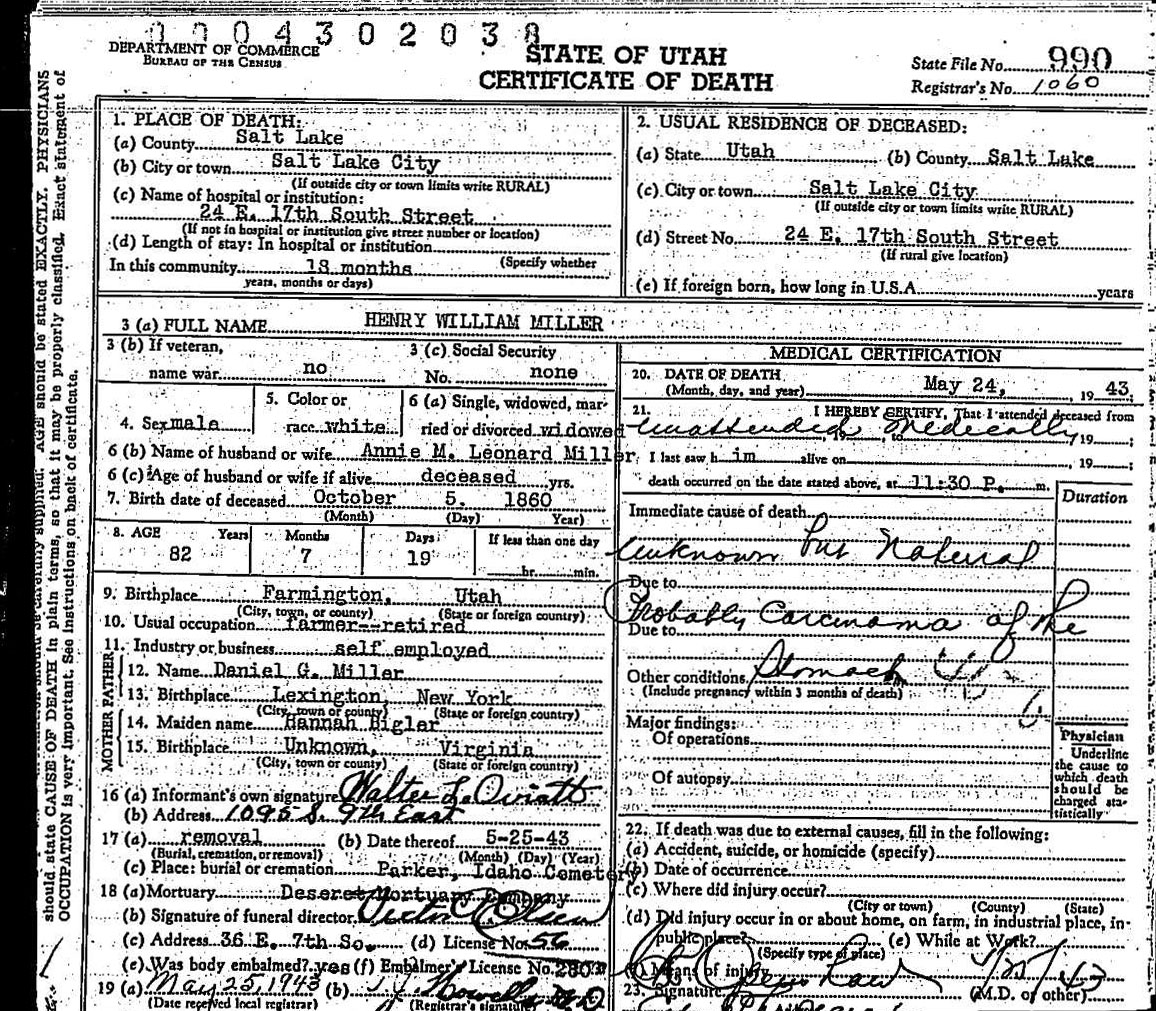 0004302038
DEPARTMENT OF COMMERCE
BUREAU OF THE CENSUS
STATE OF UTAH
CERTIFICATE OF DEATH
State File No. 990
Registrar's No. 1060
should state CAUSE OF DEATH in plain terms, so that it may be properly classified. Exact statement of
OCCUPATION is very important. See instructions on back of certificate.
AGE should be stated EXACTLY. PHYSICIANS
1. PLACE OF DEATH:
(a) County Salt Lake
(b) City or town Salt Lake City
(If outside city or town limits write RURAL)
(c) Name of hospital or institution:
24 E. 17th South Street
(If not in hospital or institution give street number or location)
(d) Length of stay: In hospital or institution
(Specify whether
In this community 13 months
years, months or days)
2. USUAL RESIDENCE OF DECEASED:
(a) State Utah (b) County Salt Lake
(c) City or town Salt Lake City
(If outside city or town limits write RURAL)
(d) Street No. 24 E. 17th South Street
(If rural give location)
(e) If foreign born, how long in U.S.A. years
3 (a) FULL NAME HENRY WILLIAM MILLER
3 (b) If veteran,
name war no
3 (c) Social Security
No. none
4. Sex male
5. Color or
race white
6 (a) Single, widowed, mar-
ried or divorced widowed
6 (b) Name of husband or wife Annie M. Leonard Miller
6 (c) Age of husband or wife if alive deceased yrs.
7. Birth date of deceased October 5. 1860
(Month) (Day) Year)
8. AGE Years Months Days If less than one day
82 7 19 hr. min.
9. Birthplace Farmington, Utah
(City, town, or county) (State or foreign country)
10. Usual occupation farmer--retired
11. Industry or business self employed
FATHER
12. Name Daniel G. Miller
13. Birthplace Lexington New York
(City, town or county) (State or foreign country)
MOTHER
14. Maiden name Hannah Bigler
15. Birthplace Unknown, Virginia
(City, town or county) (State or foreign country)
16 (a) Informant's own signature Walter L. Oviatt
(b) Address 1095 S. 9th East
17 (a) removal (b) Date thereof 5-25-43
(Burial, cremation, or removal) (Month) (Day) (Year)
(c) Place: burial or cremation Parker, Idaho Cemetery
18 (a) Mortuary Deseret Mortuary Company
(b) Signature of funeral director
(c) Address 36 E. 7th So. (d) License No. 56
(e) Was body embalmed? yes (f) Embalmer's License No.
19 (a) May 25, 1943 (b)
(Date received local registrar) (Registrar's signature)
MEDICAL CERTIFICATION
20. DATE OF DEATH
(Month, day, and year) May 24, 19 43
21. I HEREBY CERTIFY, That I attended deceased from
Unattended Medically 19 ;
I last saw h im alive on , 19 ;
death occurred on the date stated above, at 11:30 P. m.
Duration
Immediate cause of death
Unknown but Natural
Due to
Probably Carcinoma of the
Due to
Other conditions Stomach
(Include pregnancy within 3 months of death)
Major findings:
Of operations
Of autopsy
Physician
Underline
the cause to
which death
should be
charged sta-
tistically
22. If death was due to external causes, fill in the following:
(a) Accident, suicide, or homicide (specify)
(b) Date of occurrence
(c) Where did injury occur?
(City or town) (County) (State)
(d) Did injury occur in or about home, on farm, in industrial place, in-
public place? (e) While at Work?
(Specify type of place)
(f) Means of injury
23. Signature (M.D. or other)